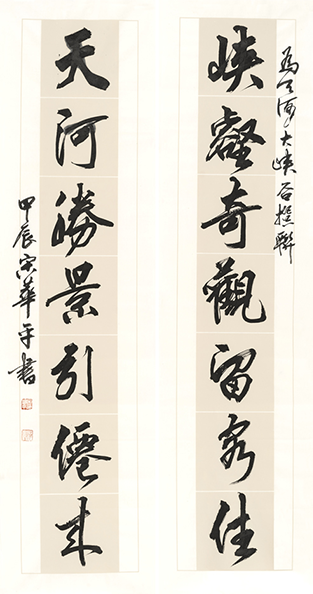 為天河大峡谷撰聯
峡壑奇觀留客住
天河勝景引僊来
甲辰宋華平書